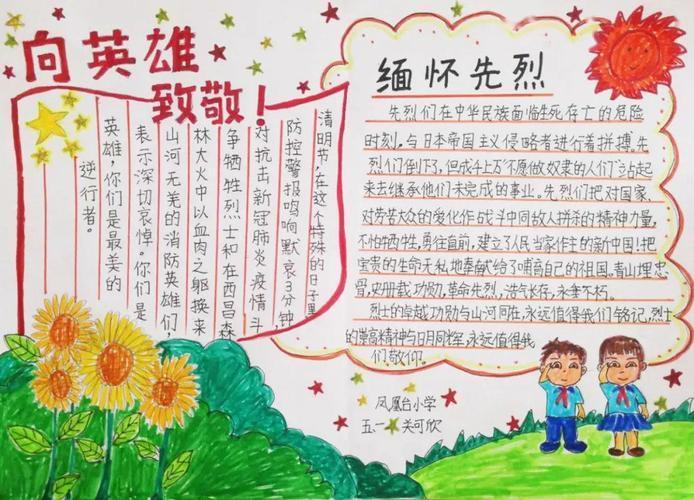 向英雄
致敬！
清明节，在这个特殊的日子里
防控警报鸣响默哀3分钟，
对抗击新冠肺炎疫情斗
争牺牲烈士和在西昌森
林大火中以血肉之躯换来
山河无羌的消防英雄们
表示深切哀悼。你们是
英雄，你们是最美的
逆行者。
缅怀先烈
先烈们在中华民族面临生死存亡的危险
时刻，与日本帝国主义侵略者进行着拼搏。先
烈们倒下了，但成千上万"不愿做奴隶的人们"站起
来去继承他们未完成的事业。先烈们把对国家、
对劳苦大众的爱化作战斗中同敌人拼杀的精神力量，
不怕牺牲，勇往直前，建立了人民当家作主的新中国！把
宝贵的生命无私地奉献给了哺育自己的祖国。青山埋忠
骨，史册载功勋，革命先烈，浩气长存，永垂不朽。
烈士的卓越功勋与山河同在，永远值得我们铭记，烈士
的崇高精神与日月同辉，永远值得我
们敬仰。
凤凰台小学
五一 关可欣